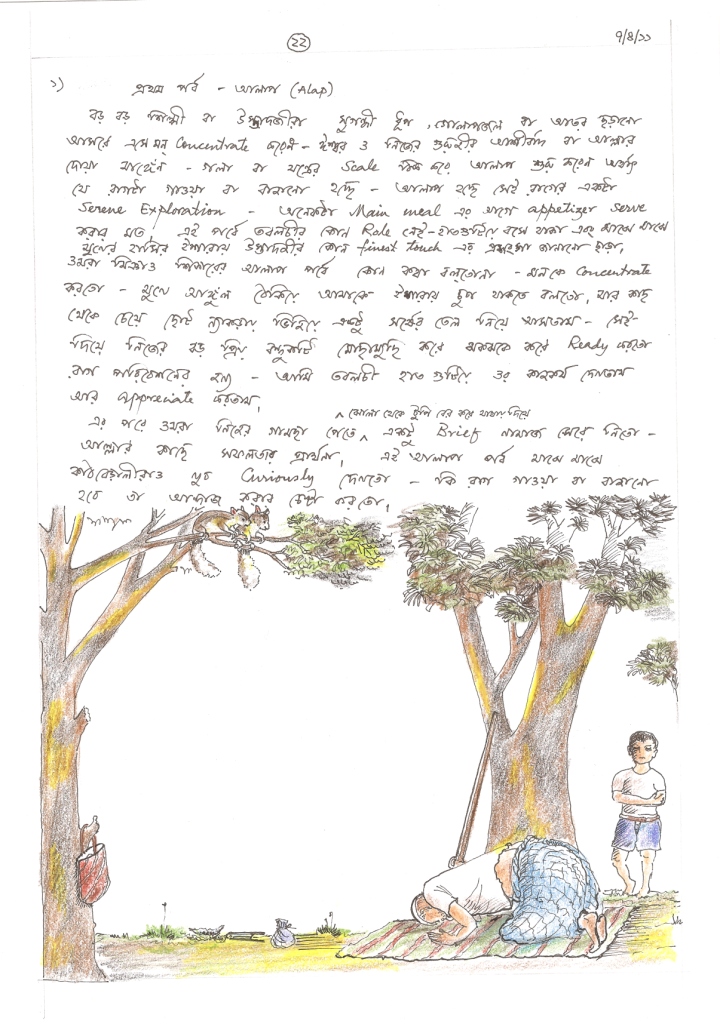 ২২
৭/৪/১১
১) প্রথম পর্ব - আলাপ (Alap)
বড় বড় শিল্পী বা উস্তাদজীরা সুগন্ধী ধূপ, গোলাপজল বা আতর ছড়ানো
আসরে এসে মন Concentrate করেন - ঈশ্বর ও নিজের গুরুজীর আশীর্বাদ বা আল্লার
দোয়া মাঙ্গেন - গলা বা যন্ত্রের Scale ঠিক করে আলাপ শুরু করেন অর্থাৎ
যে রাগটা গাওয়া বা বাজানো হচ্ছে - আলাপ হচ্ছে সেই রাগের একটা
Serene Exploration - অনেকটা Main meal এর আগে appetizer serve
করার মত, এই পর্বে তবলচীর কোন Role নেই - হাত গুটিয়ে বসে থাকা এবং মাঝে মাঝে
মুখের হাসির ইশারায় উস্তাদজীর কোন finest touch এর প্রশংসা জানানো ছাড়া,
ওমরা মিঞাও শিকারের আলাপ পর্বে কোন কথা বলতোনা - মনকে Concentrate
করতো - মুখে আঙ্গুল ঠেকিয়ে আমাকে ইশারায় চুপ থাকতে বলতো, মার কাছ
থেকে চেয়ে ছোট ন্যাকড়ায় ভিজিয়ে একটু সর্ষের তেল নিয়ে আসতাম - সেই
দিয়ে নিজের বড় প্রিয় বন্দুকটি মোছামুছি করে ঝকঝকে করে Ready করতো
রাগ পরিবেশনের জন্য - আমি তবলচী হাত গুটিয়ে ওর কাজকর্ম দেখতাম
আর appreciate করতাম,
এর পরে ওমরা নিজের গামছা পেতে ^ ঝোলা থেকে টুপি বের করে মাথায় দিয়ে একটু Brief নামাজ সেরে নিতো -
আল্লার কাছে সফলতার প্রার্থনা, এই আলাপ পর্ব মাঝে মাঝে
কাঠবেড়ালীরাও খুব Curiously দেখতো - কি রাগ গাওয়া বা বাজানো
হবে তা আন্দাজ করার চেষ্টা করতো,